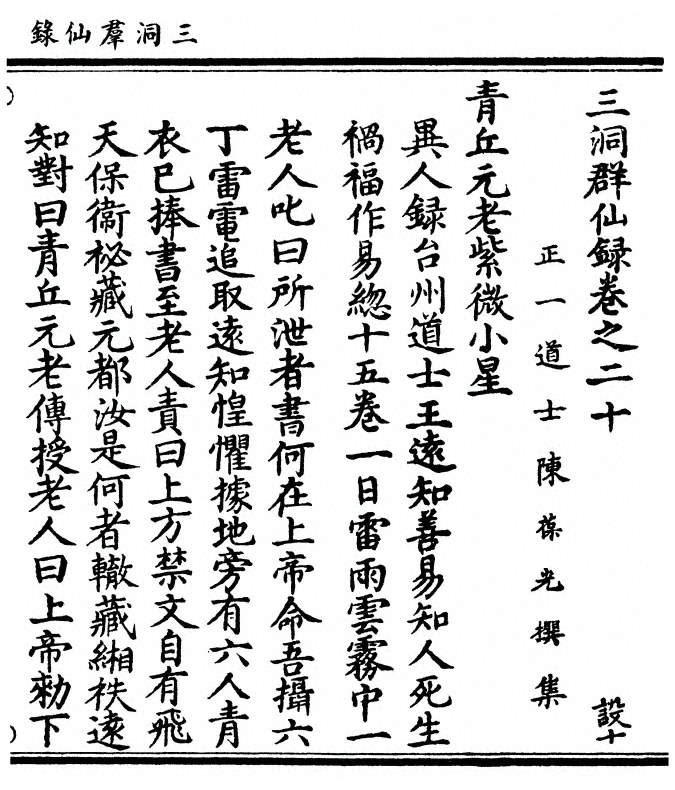 三洞羣仙錄
三洞群仙録卷之二十
設十
正一道士陳葆光撰集
青丘元老紫微小星
異人録台州道士王遠知善易知人死生
禍福作易緫十五卷一日雷雨雲霧中一
老人叱曰所泄者書何在上帝命吾攝六
丁雷電追取遠知惶懼據地旁有六人青
衣巳捧書至老人責曰上方禁文自有飛
天保衞祕藏元都汝是何者轍藏緗袟遠
知對曰青丘元老傳授老人曰上帝勑下